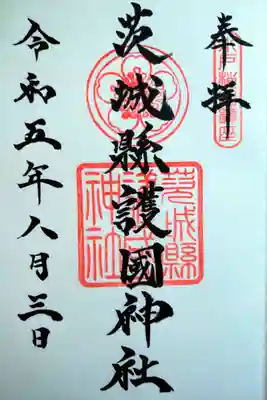 奉拝
茨城縣護國神社
茨城縣
護國
神社
令和五年八月三日